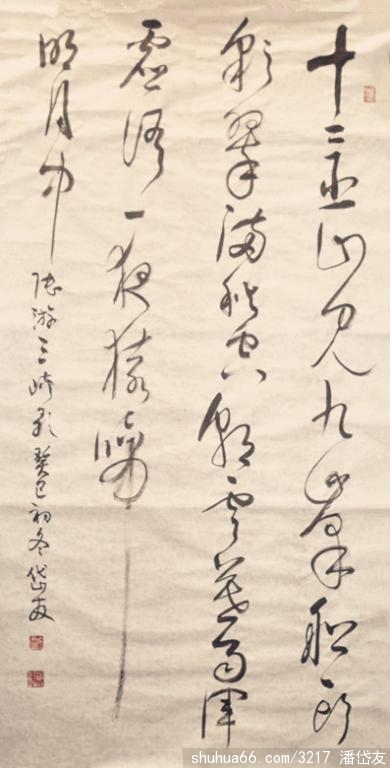 十二巫山见九峯船头
彩翠满秋空朝云暮雨浑
虚语一夜猿啼
明月中
陆游三峡歌癸巳初冬岱友
shuhua66.com/3217 潘岱友